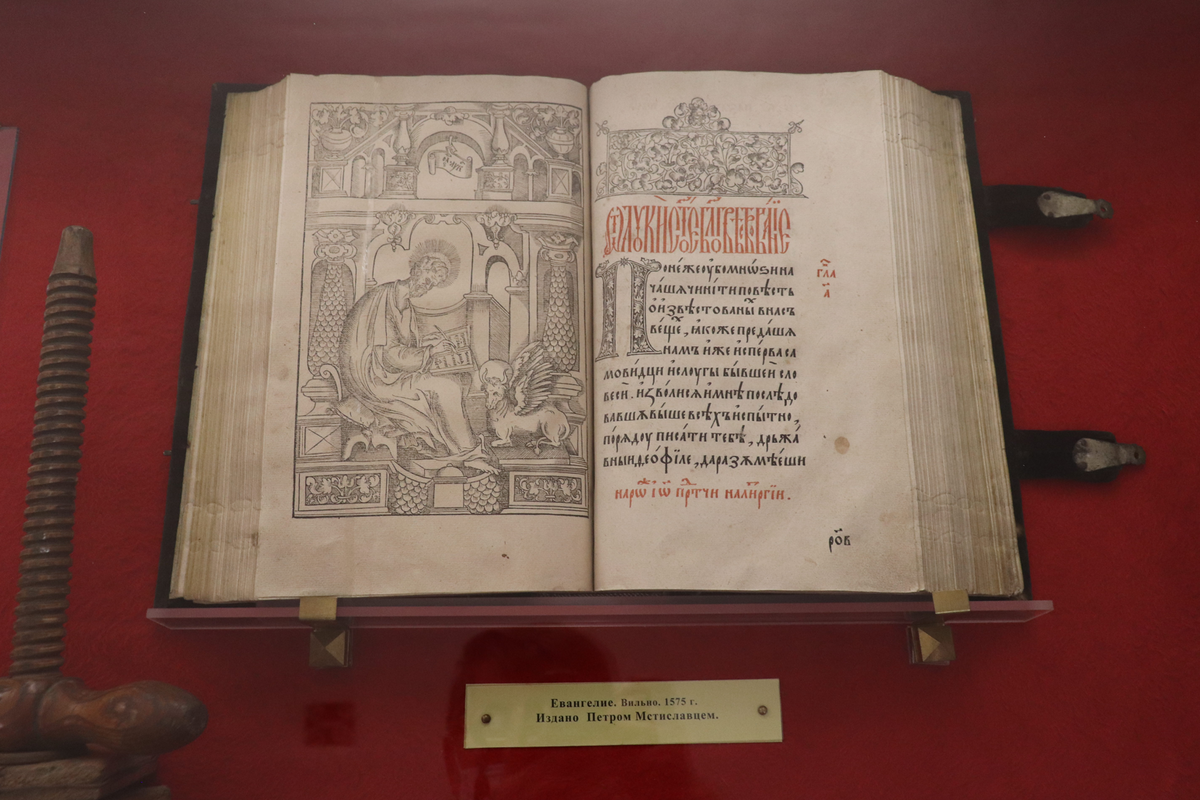 Ѿ лꙋки ст҃ое бл҃говѣствованїе
Понéже оу҆бо мнѡѕи на
чáшѧ чинѝти повѣсть
ѻ҆ и҆звѣстованы́хъ в насъ
вéщеⷯ, ꙗ҆́коже предáшѧ
намъ и҆́же и҆спéрва са
мови́дци и҆ слоугы̀ бы́вшеи сло
весѝ. и҆зволи́сѧ и҆ мнѣ̀ послѣдо
вавшꙋ вы́ше всѣ́хъ и҆спы́тно,
порѧ́доу писáти тебѣ̀, дръжá
вныи ѳео́філе, да разꙋмѣ́еши
гла
а
роⷤв
Евангелие. Вильно. 1575 г.
Издано Петром Мстиславцем.